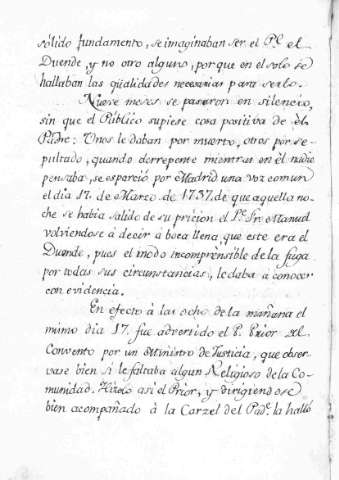 sólido fundamento, se imaginaban ser el Pe. el
Duende, y no otro alguno, porque en el solo se
hallaban las qüalidades necesarias para serlo.
Nueve meses se pasaron en silencio,
sin que el Público supiese cosa positiva de èl
Padre: Unos le daban por muerto, otros por se-
pultado, quando derrepente mientras en èl nadie
pensaba, se esparció por Madrid una voz comun
el dia 17. de Marzo de 1737. de que aquella no-
che se habia salido de su prision el Pe. Fr. Manuel
volviendose à decir à boca llena, que este era el
Duende, pues el modo incomprensible de la fuga
por todas sus circunstancias, le daba à conocer
con evidencia.
En efecto à las ocho de la mañana el
mismo dia 17. fue advertido el P. Prior del
Convento por un Ministro de Justicia, que obser-
vase bien si le faltaba algun Religioso de la Co-
munidad. Hizolo asi el Prior, y dirigiendose
bien acompañado à la Carzel del Pade. la halló